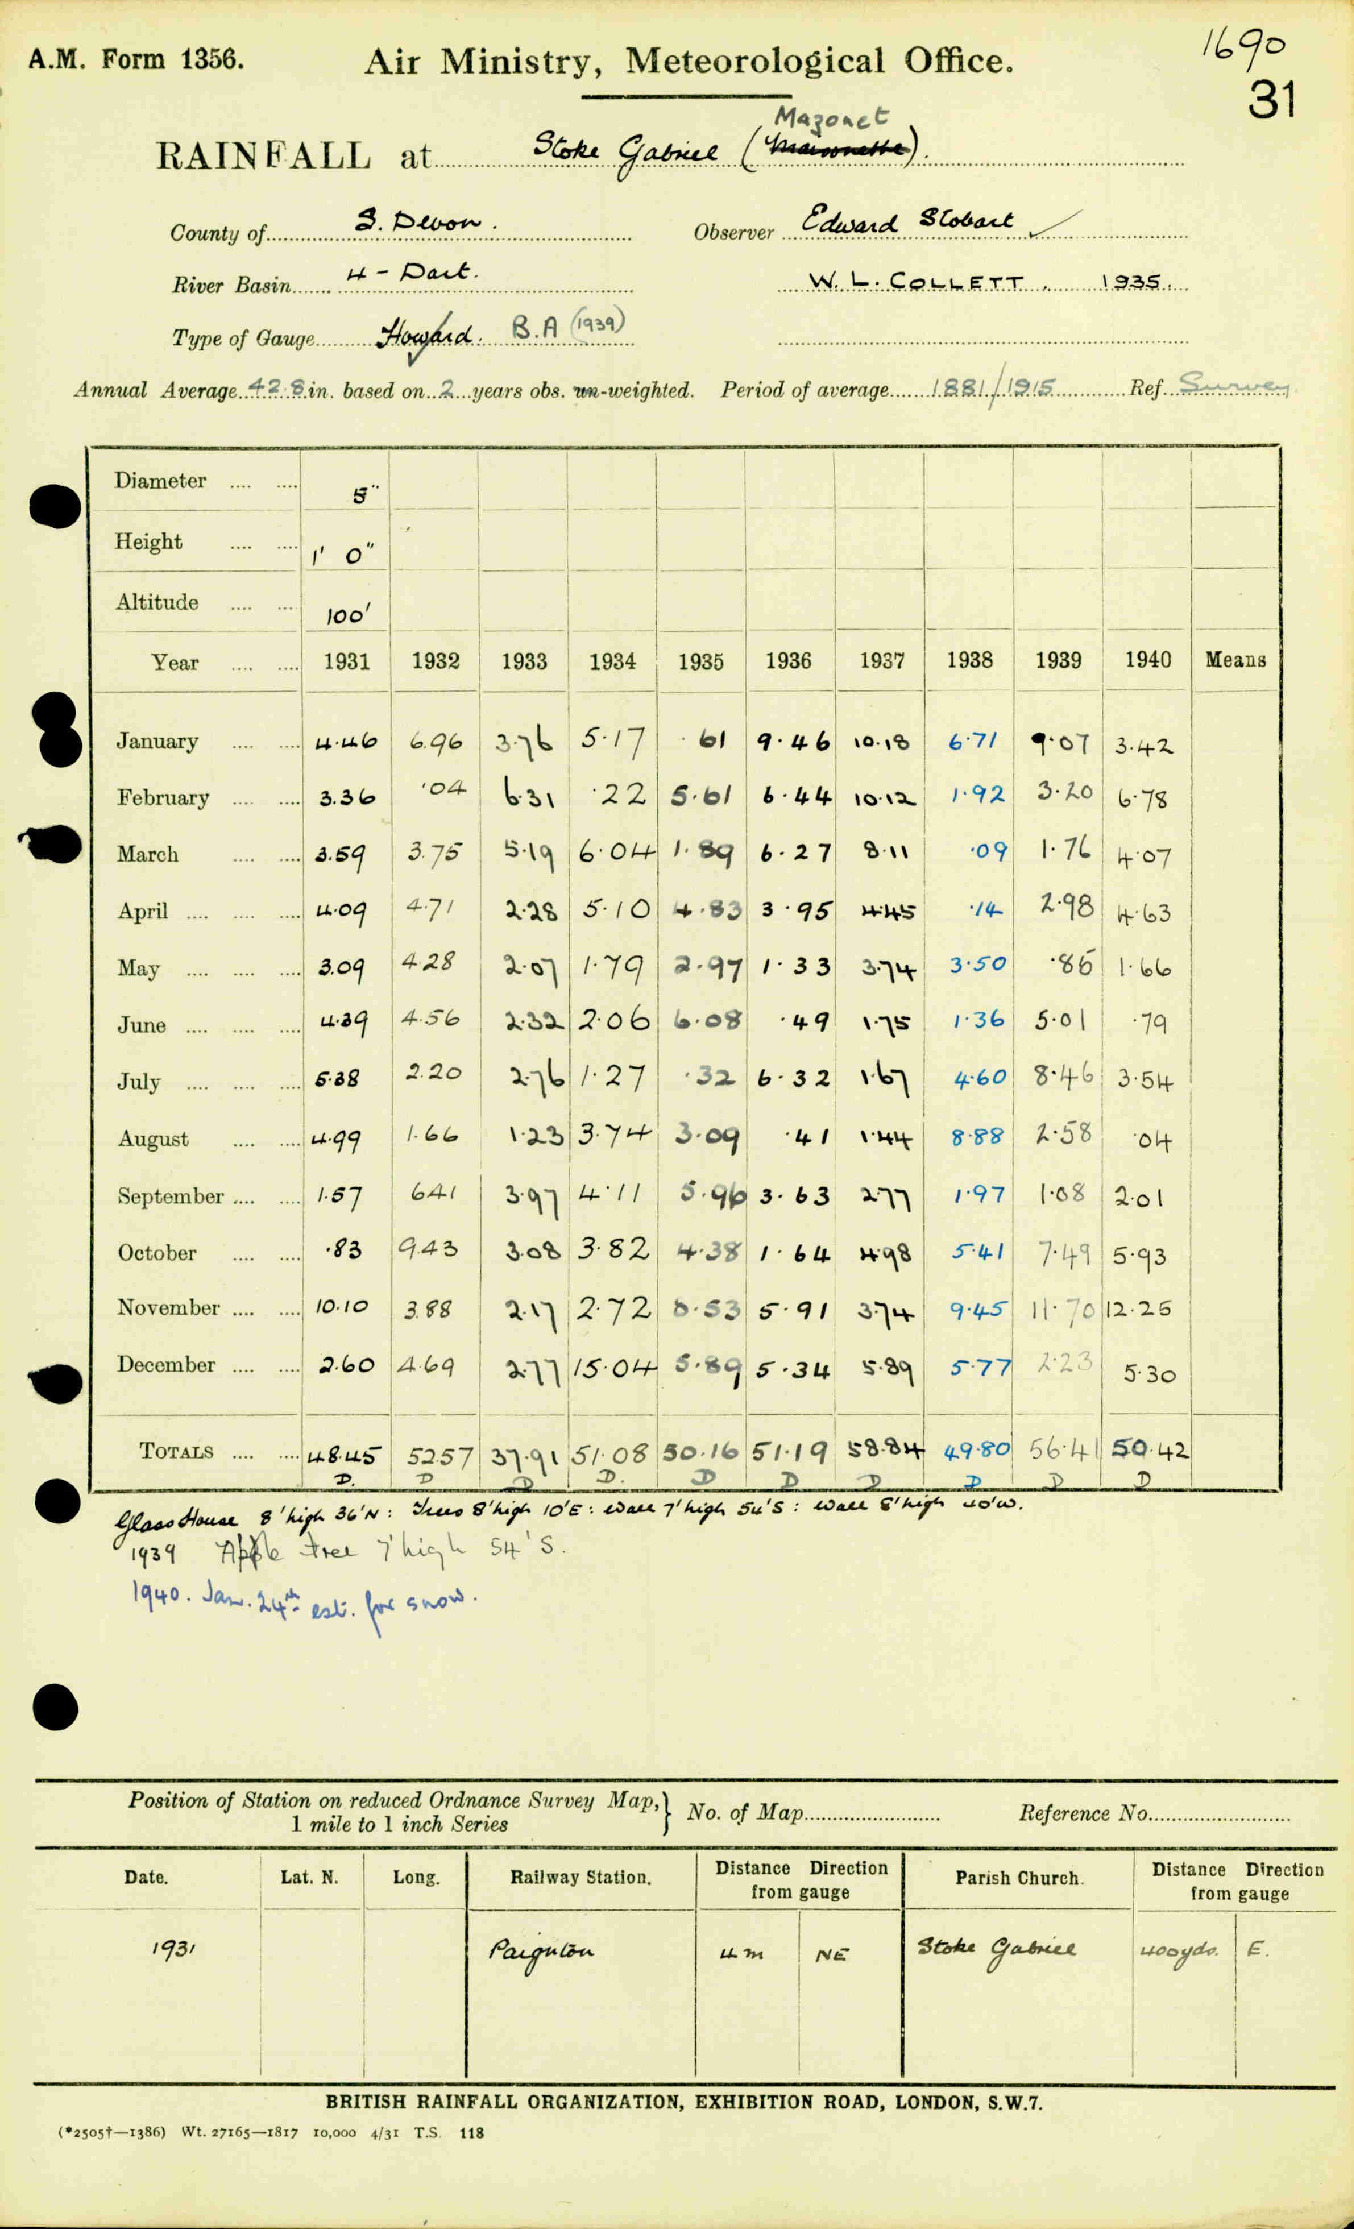 A.M. Form 1356.
Air Ministry, Meteorological Office.
1690
31
Mazonet
RAINFALL at Stoke Gabriel (Maisonette).
County of S. Devon. Observer Edward Stobart ✓
River Basin 4 - Dart. W. L. COLLETT. 1935.
Type of Gauge Howard. B.A (1939)
Annual Average 42.8 in. based on 2 years obs. un-weighted. Period of average 1881/1915 Ref. Survey
Diameter .... .... 5"
Height .... .... 1' 0"
Altitude .... .... 100'
Year .... .... 1931 1932 1933 1934 1935 1936 1937 1938 1939 1940 Means
January .... .... 4.46 6.96 3.76 5.17 .61 9.46 10.18 6.71 9.07 3.42
February .... .... 3.36 .04 6.31 .22 5.61 6.44 10.12 1.92 3.20 6.78
March .... .... 3.59 3.75 5.19 6.04 1.89 6.27 8.11 .09 1.76 4.07
April .... .... .... 4.09 4.71 2.28 5.10 4.83 3.95 4.45 .14 2.98 4.63
May .... .... .... 3.09 4.28 2.07 1.79 2.97 1.33 3.74 3.50 .85 1.66
June .... .... .... 4.39 4.56 2.32 2.06 6.08 .49 1.75 1.36 5.01 .79
July .... .... .... 5.38 2.20 2.76 1.27 .32 6.32 1.67 4.60 8.46 3.54
August .... .... 4.99 1.66 1.23 3.74 3.09 .41 1.44 8.88 2.58 .04
September .... .... 1.57 6.41 3.97 4.11 5.96 3.63 2.77 1.97 1.08 2.01
October .... .... .83 9.43 3.08 3.82 4.38 1.64 4.98 5.41 7.49 5.93
November .... .... 10.10 3.88 2.17 2.72 8.53 5.91 3.74 9.45 11.70 12.25
December .... .... 2.60 4.69 2.77 15.04 5.89 5.34 5.89 5.77 2.23 5.30
TOTALS .... .... 48.45 52.57 37.91 51.08 50.16 51.19 58.84 49.80 56.41 50.42
D. D D D. D D D D D D
Glass House 8' high 36' N : Trees 8' high 10' E : Wall 7' high 54' S : Wall 8' high 40' W.
1939 Apple tree 7' high 54' S.
1940. Jan. 24th est. for snow.
Position of Station on reduced Ordnance Survey Map, 1 mile to 1 inch Series } No. of Map Reference No.
Date. Lat. N. Long. Railway Station. Distance Direction from gauge Parish Church. Distance Direction from gauge
1931 Paignton 4 m NE Stoke Gabriel 400 yds. E.
BRITISH RAINFALL ORGANIZATION, EXHIBITION ROAD, LONDON, S.W.7.
(*2505†—1386) Wt. 27165—1817 10,000 4/31 T.S. 118